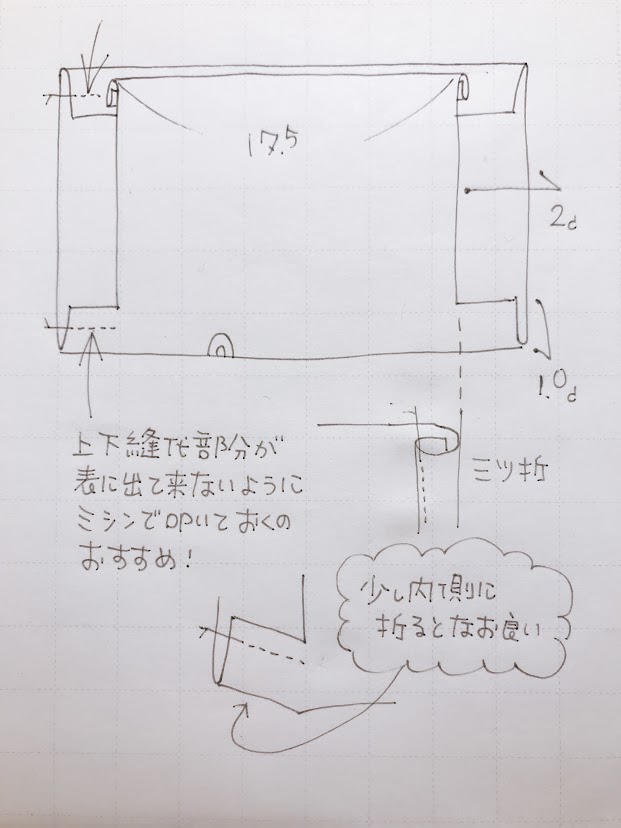 17.5
2d
1.0d
上下縫代部分が
表に出て来ないように
ミシンで叩いておくの
おすすめ!
三ツ折
少し内側に
折るとなお良い